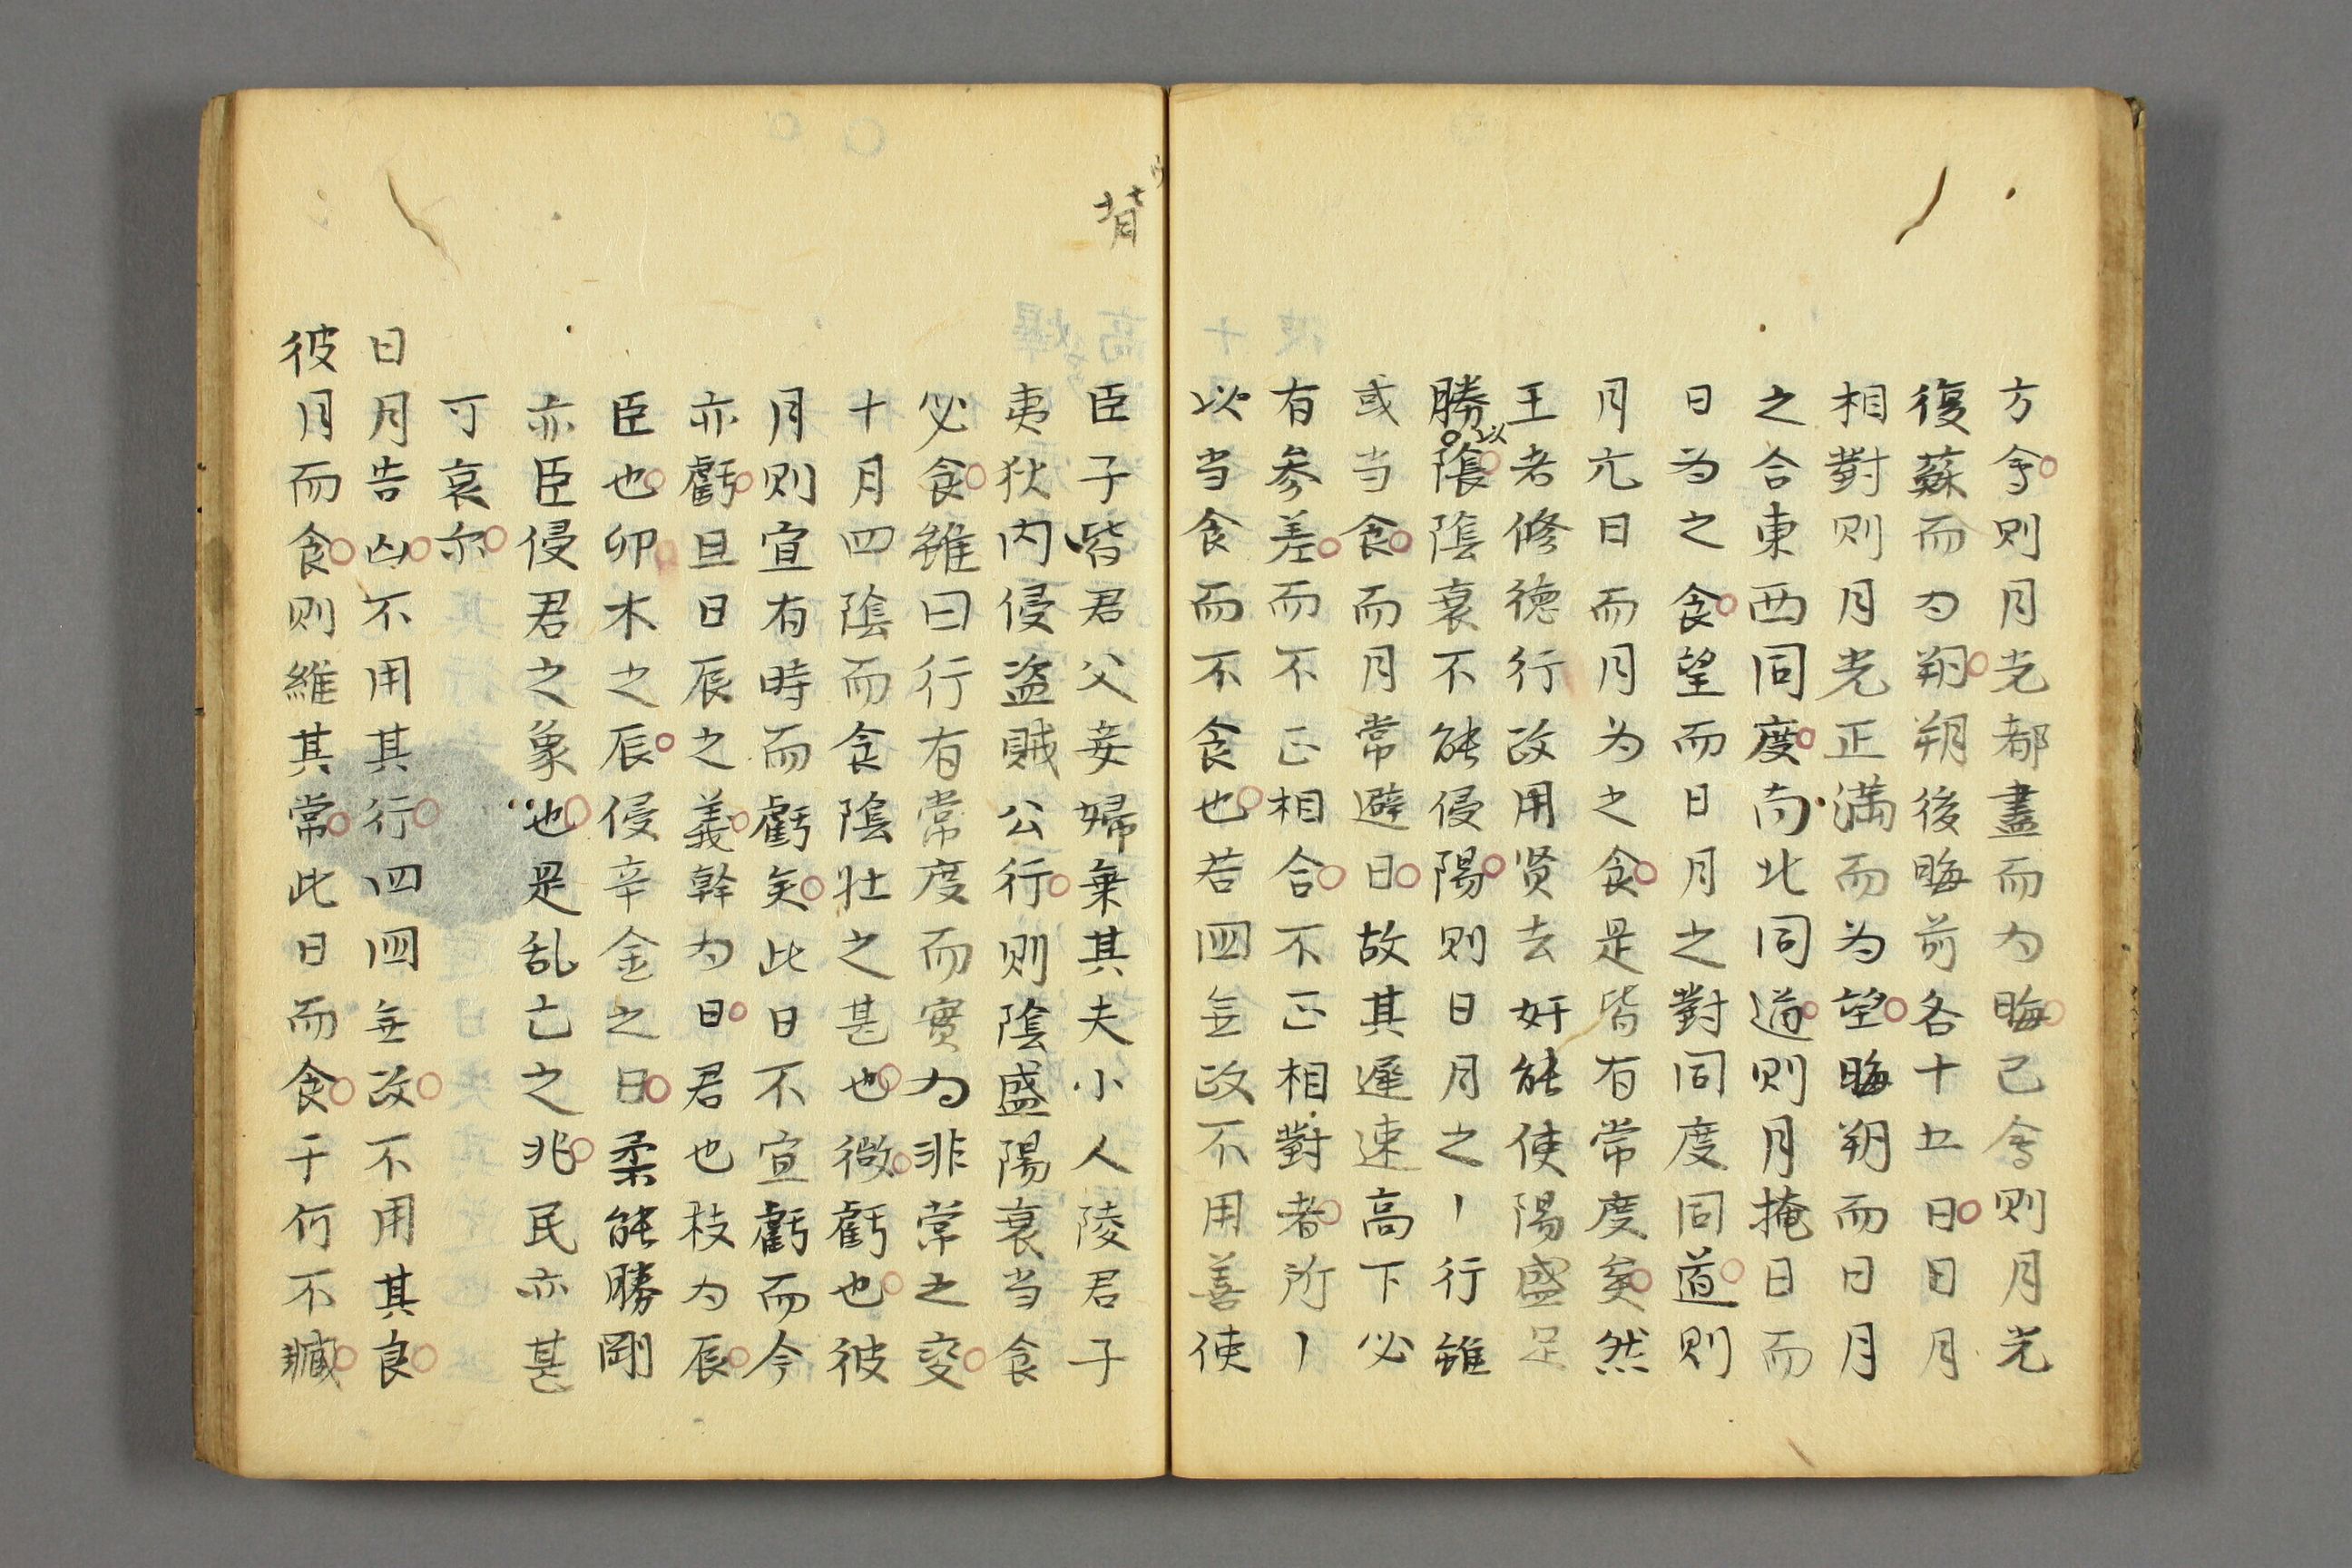 方会則月光都盡而为晦已会則月光
復蘇而为朔朔後晦前各十五日日月
相對則月光正满而为望晦朔而日月
之合東西同度南北同道則月掩日而
日为之食望而日月之對同度同道則
月亢日而月为之食是皆有常度矣然
王者修德行政用贤去奸能使陽盛足
勝陰以陰衰不能侵陽則日月之丶行雖
或当食而月常避日故其遲速高下必
有参差而不正相合不正相對者所丶
以当食而不食也若囯無政不用善使
背
臣子皆君父妾婦乗其夫小人陵君子
夷狄内侵盗賊公行則陰盛陽衰当食
必食雖曰行有常度而實为非常之変
十月四陰而食陰壮之甚也微虧也彼
月則宜有時而虧矣此日不宜虧而今
亦虧且日辰之義幹为日君也枝为辰
臣也卯木之辰侵辛金之日柔能勝剛
亦臣侵君之象也是乱亡之兆民亦甚
可哀尔
日月告凶不用其行四囯無政不用其良
彼月而食則維其常此日而食于何不臧